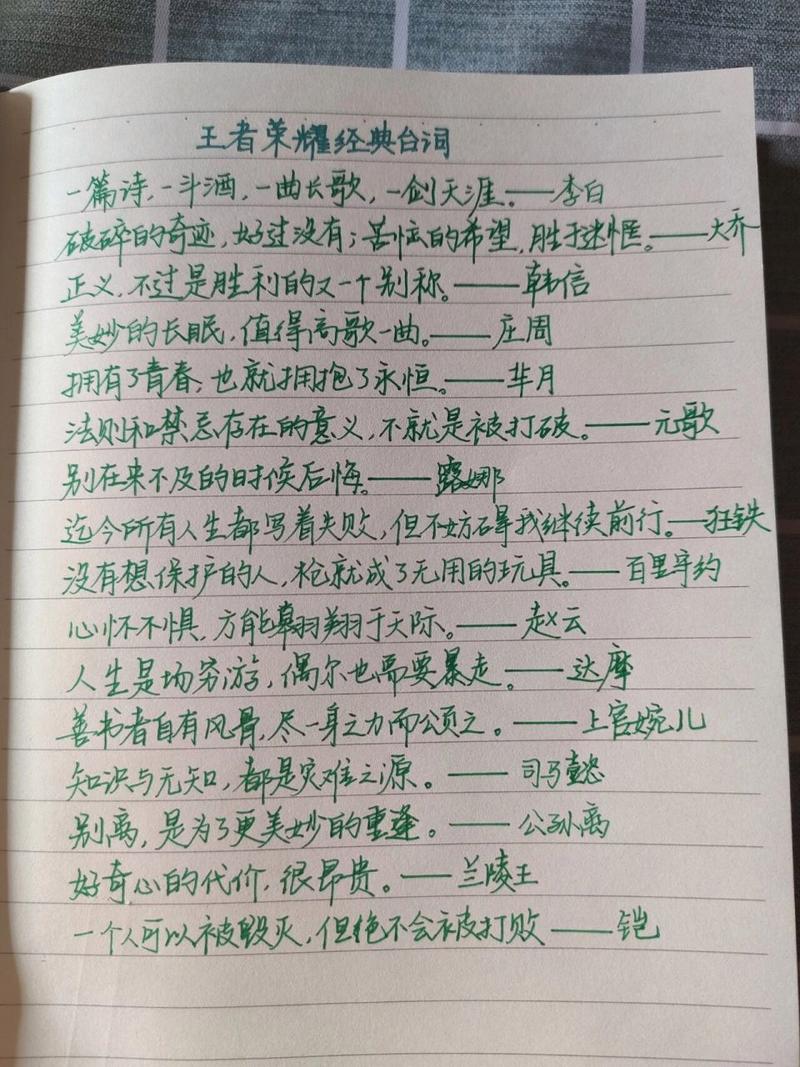 王者荣耀经典台词
一篇诗,一斗酒,一曲长歌,一剑天涯。——李白
破碎的奇迹,好过没有;苦恼的希望,胜于迷惘。——大乔
正义,不过是胜利的又一个别称。——韩信
美妙的长眠,值得高歌一曲。——庄周
拥有了青春,也就拥抱了永恒。——芈月
法则和禁忌存在的意义,不就是被打破。——元歌
别在来不及的时候后悔。——露娜
迄今所有人生都写着失败,但不妨碍我继续前行。——狂铁
没有想保护的人,枪就成了无用的玩具。——百里守约
心怀不惧,方能翱翔于天际。——赵云
人生是场穷游,偶尔也需要暴走。——达摩
善书者自有风骨,尽一身之力而颂之。——上官婉儿
知识与无知,都是灾难之源。——司马懿
别离,是为了更美妙的重逢。——公孙离
好奇心的代价,很昂贵。——兰陵王
一个人可以被毁灭,但绝不会被打败——铠